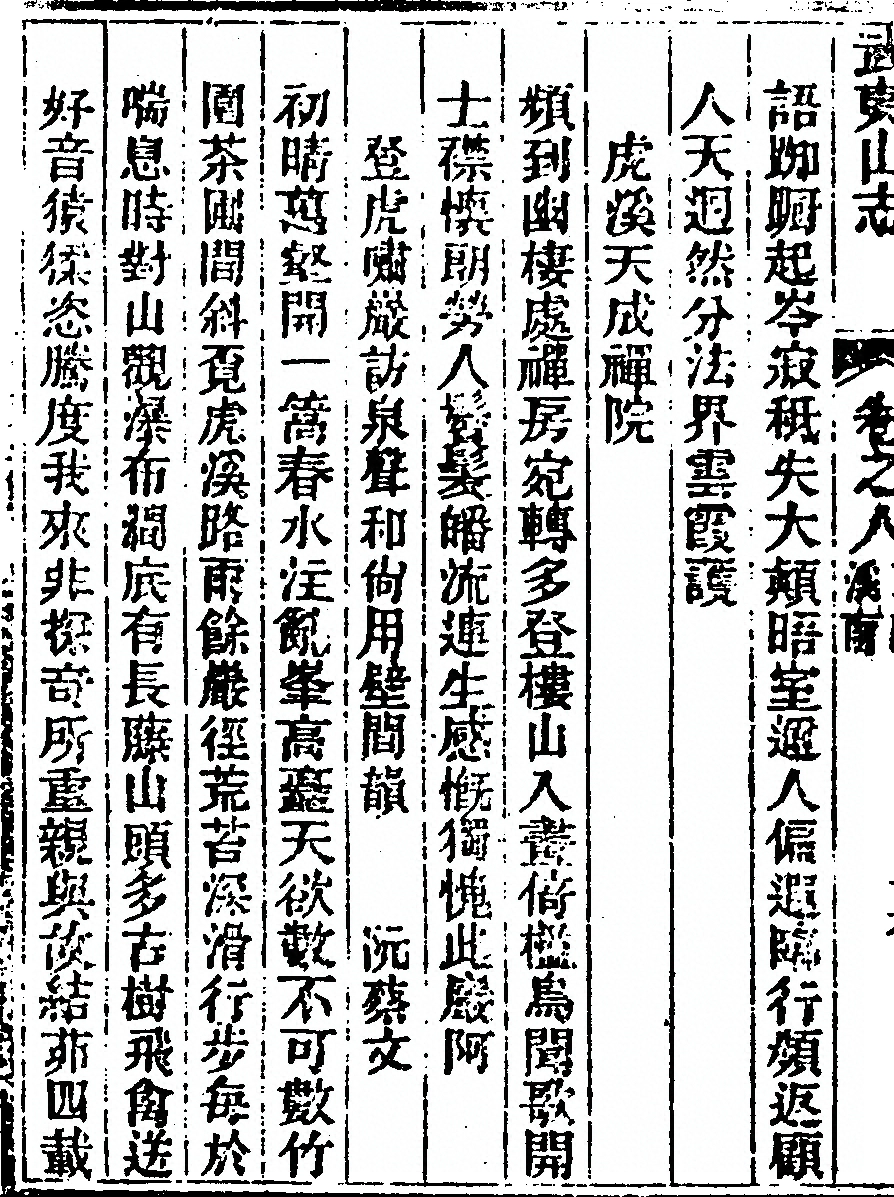 武夷山志 卷之八 溪南
語踟躕起岑寂秖失大顛晤室邇人偏遐臨行頻返顧
人天迥然分法界雲霞護
虎溪天成禪院
頻到幽棲處禪房宛轉多登樓山入畫倚檻鳥聞歌開
士襟懷朗勞人鬢髮皤流連生感慨獨愧此巖阿
登虎嘯巖訪泉聲和尚用壁間韻 沅蔡文
初晴萬壑開一篙春水注亂峯高矗天欲數不可數竹
園茶圃間斜覓虎溪路雨餘巖徑荒苔深滑行步每於
喘息時對山觀瀑布澗底有長藤山頭多古樹飛禽送
好音猿猱恣騰度我來非探奇所重親與故結茆四載